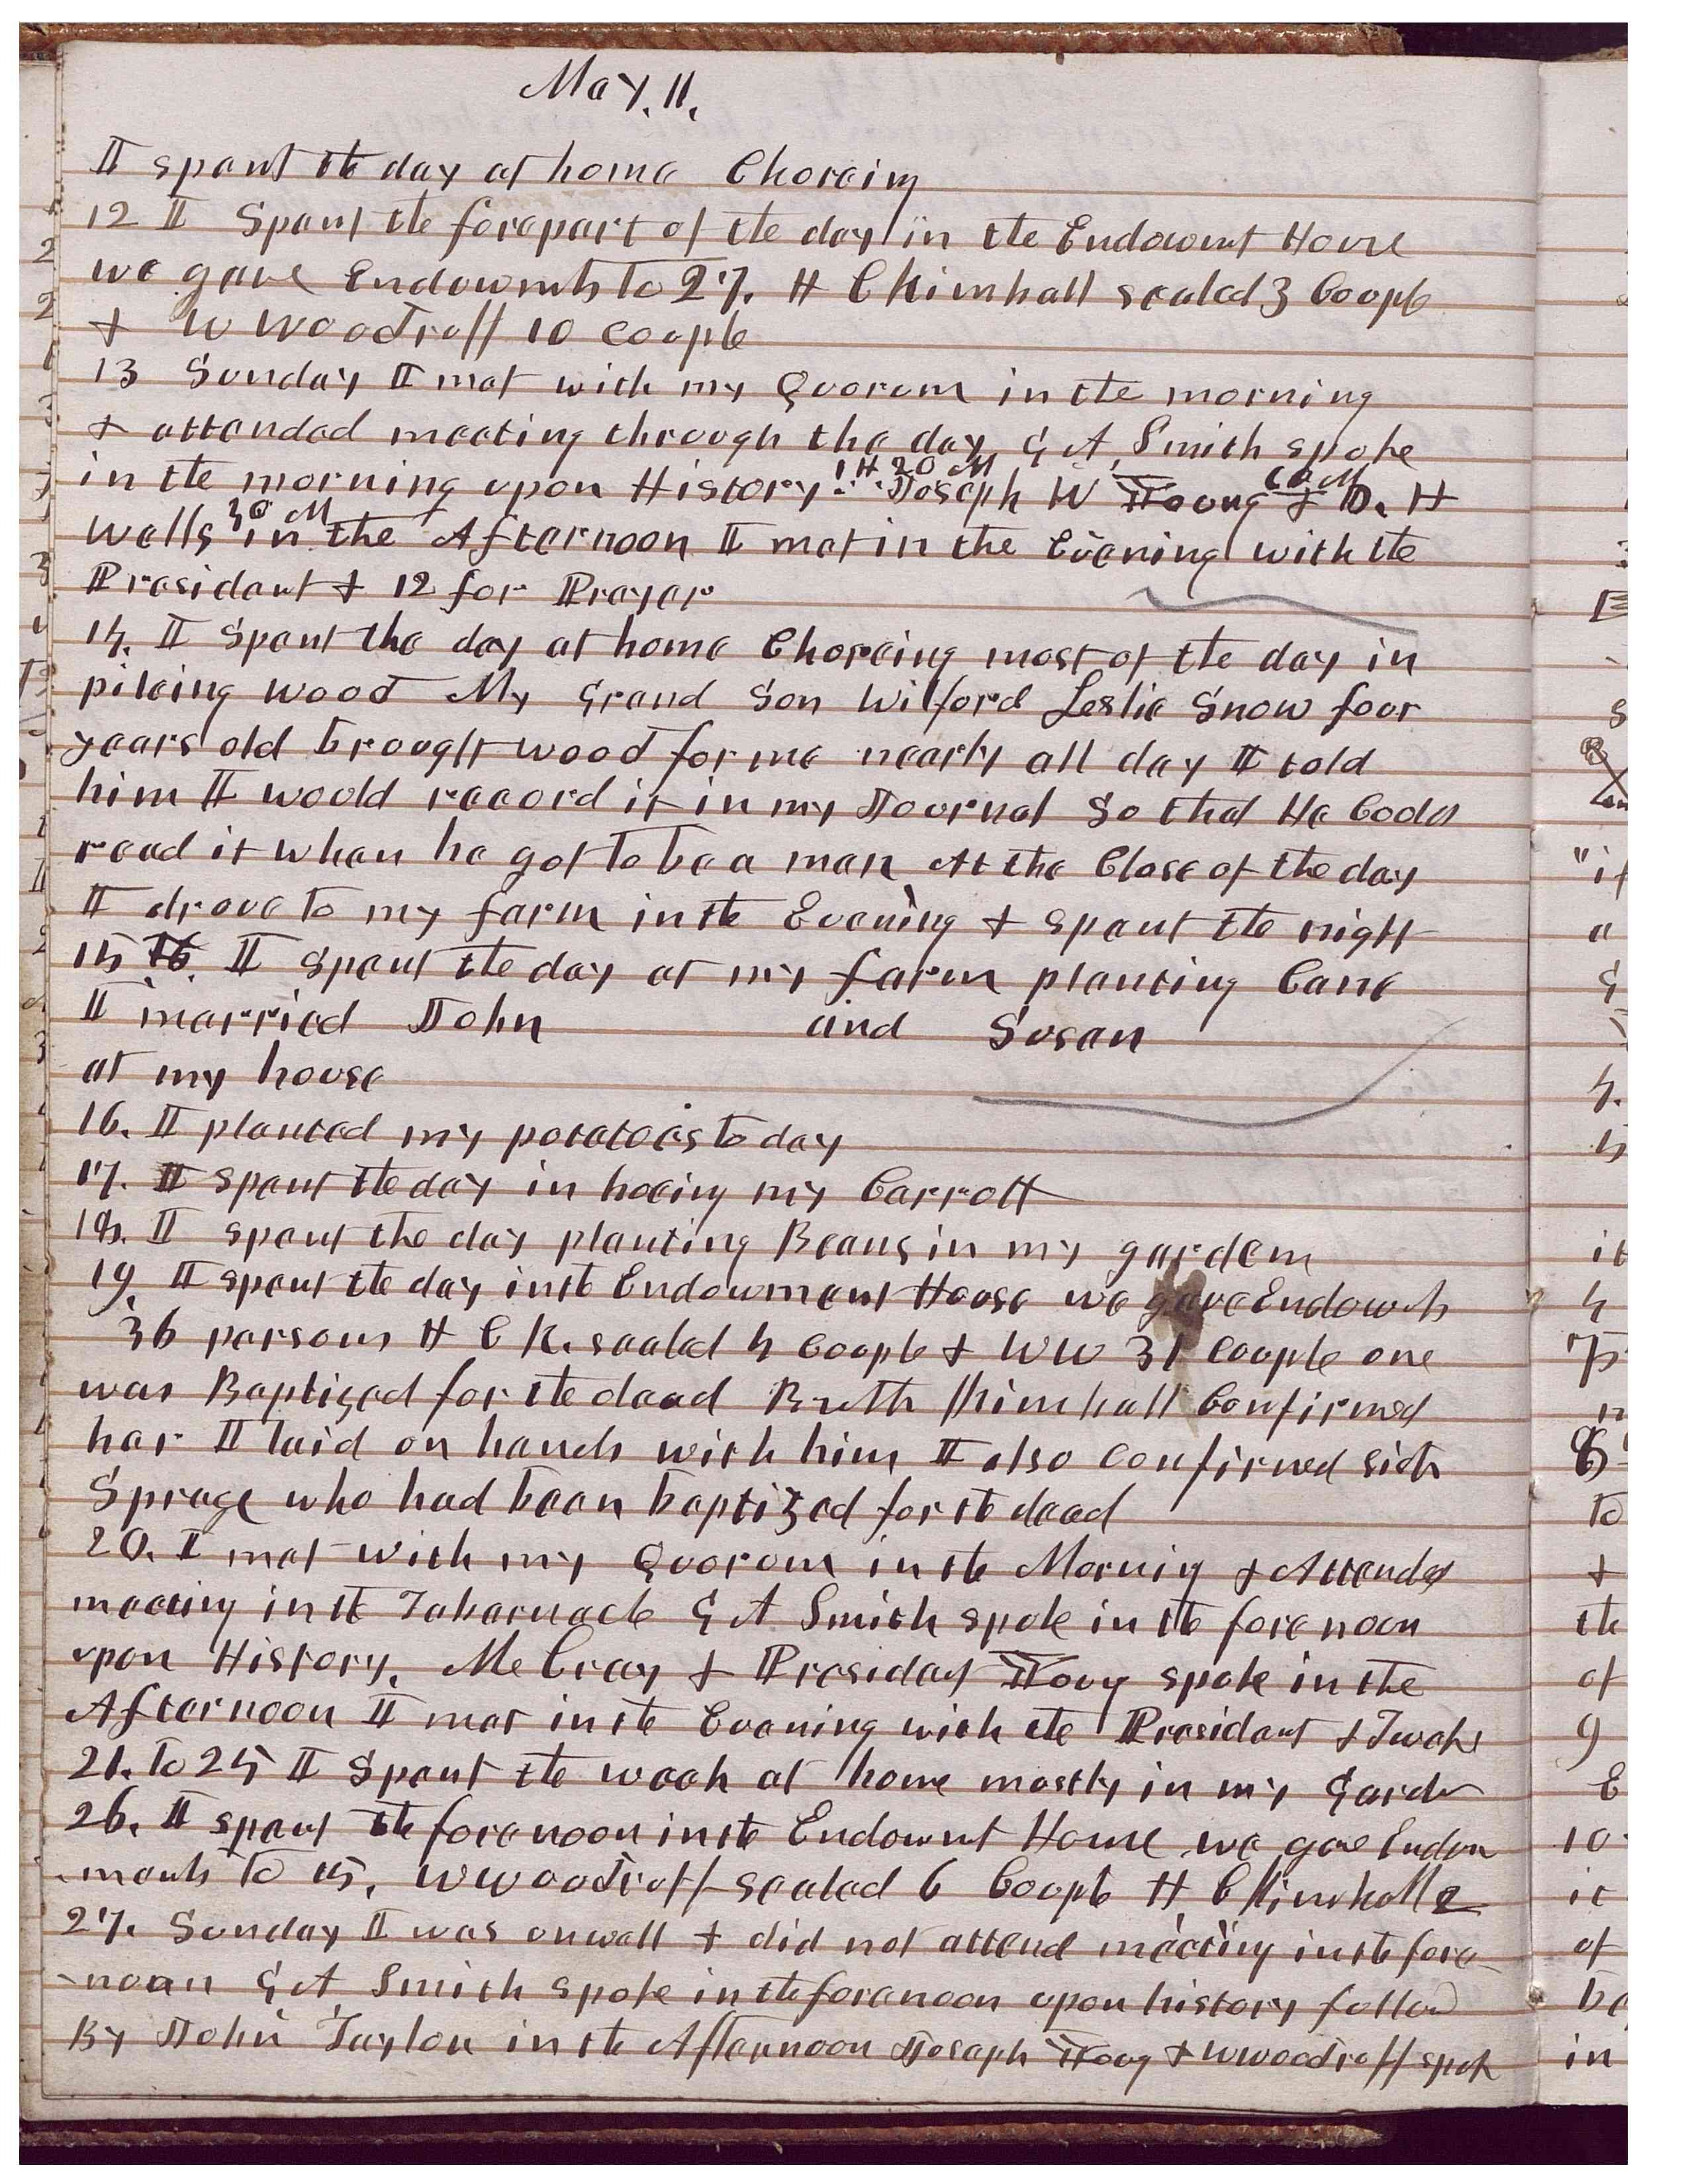 May. 11.
I spent the day at home Choreing
12 I Spent the forepart of the day in the Endowmt House
we gave Endowmts to 27. H C Kimball sealed 3 Couple
+ W Woodruff 10 Couple
13 Sunday I met with my Quorum in the morning
+ attended meeting through the day, G A, Smith spoke
in the morning upon History 1 H 20 M Joseph W Young 60 M + D. H
Wells 30 M in the Afternoon I met in the Evening with the
President + 12 for Prayer
14. I Spent the day at home Choreing most of the day in
pileing wood My Grand Son Wilford Leslie Snow four
years old brought wood for me nearly all day I told
him I would record it in my Journal So that He Could
read it when he got to be a man At the Close of the day
I drove to my farm in the Evening + spent the night
15 16. I spent the day at my farm planting Cane
I married John and Susan
at my house
16. I planted my potatoes to day
17. I spent the day in hoeing my Carrott
18. I spent the day planting Beans in my gardem
19. I spent the day in the Endowment House we gave Endowmts
36 persons H C K. sealed 4 Couple + WW 31 Couple one
was Baptized for the dead Broth Kimball Confirmed
her I laid on hands with him I also Confirmed Sistr
Sprage who had been baptized for the dead
20. I met with my Quorum in the Mornig + Attended
meeting in the Tabernacle G A Smith spoke in the forenoon
upon History. McCray + President Young spoke in the
Afternoon I met in the Evening with the President + Twelve
21. to 25 I Spent the week at home mostly in my Garden
26. I spent the forenoon in the Endowmt House we gave Endow
-ments to 15, W Woodruff sealed 6 Couple H C Kimball 2
27. Sunday I was unwell + did not attend meeting in the fore
-noon G A Smith spoke in the forenoon upon history follow
By John Taylor in the Afternoon Joseph Young + W Woodruff spok